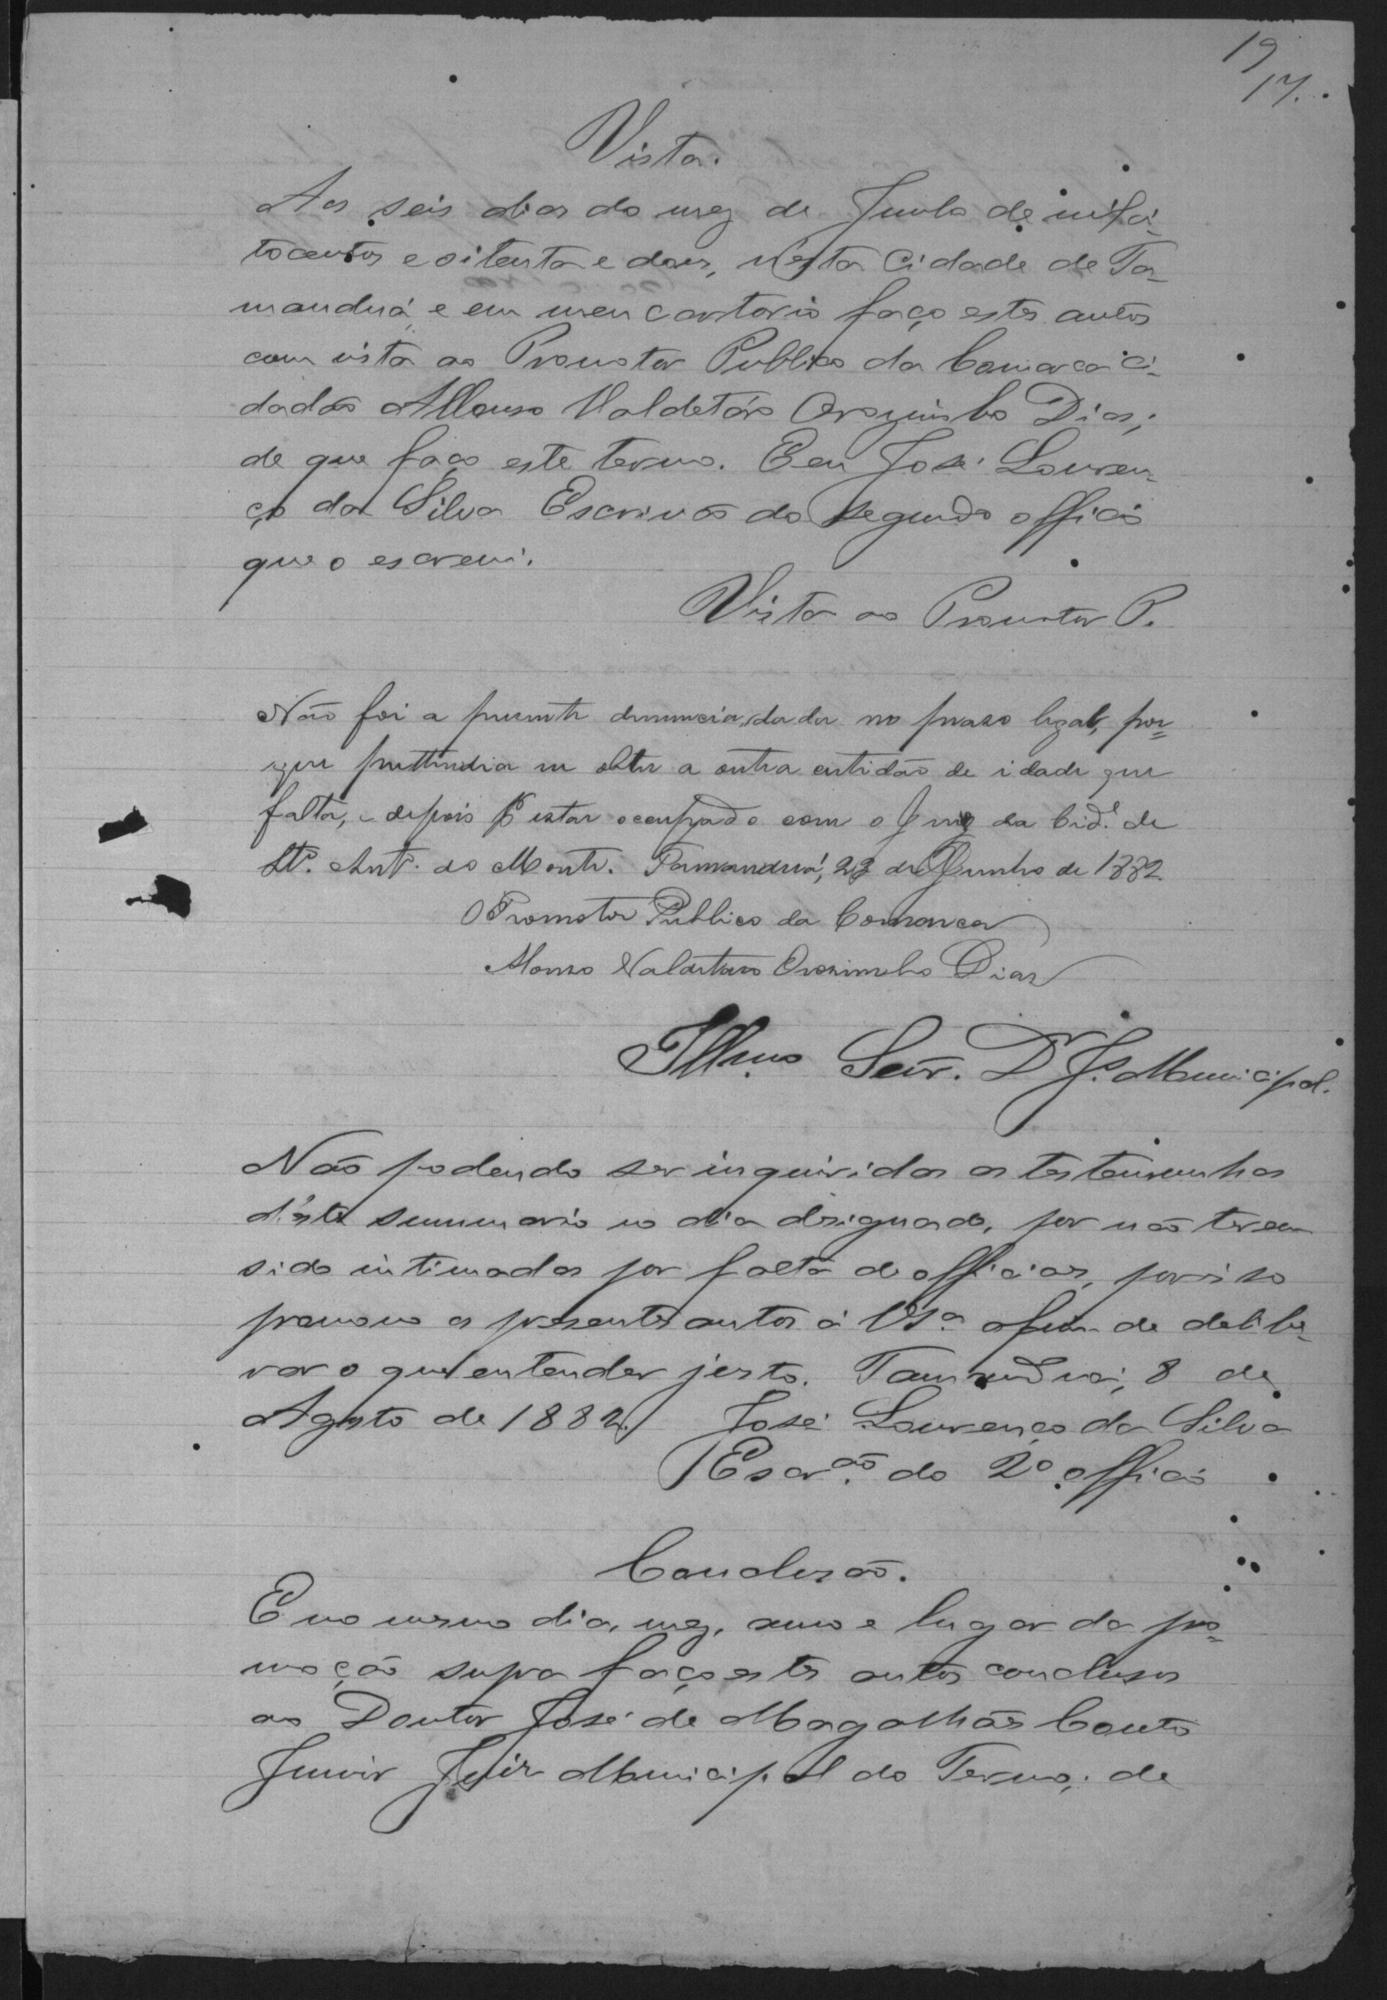 19
17.
Vista.
Aos seis dias do mez de Junho de mil oi-
tocentos e oitenta e dous, n'esta Cidade de Ta-
manduá e em meu cartorio faço estes autos
com vista ao Promotor Publico da Comarca Ci-
dadão Affonso Valdetáro Orozimbo Dias;
de que faço este termo. Eeu José Louren-
ço da Silva Escrivão do segundo officio
que o escrevi.
Vista ao Promotor P.
Não foi a presente denuncia dada no praso legal, por-
que prettendia eu obter a outra certidão de idade que
falta, e depois p estar occupado com o Jury da Cid.e de
St.o Ant.o do Monte. Tamanduá, 23 de Junho de 1882
O Promotor Publico da Comarca
Afonso Valdetaro Orosimbo Dias
Illmo Senr. Dr J. Municipal.
Não podendo ser inquiridas as testemunhas
d'este summario no dia designado, por não terem
sido intimadas por falta de officiaes, por isso
promovo os presentes autos á VSa. afim de delibe-
rar o que entender justo. Tamanduá, 8 de
Agosto de 1882. José Lourenço da Silva
Escrão. do 2o officio
Conclusão.
E no mesmo dia, mez, anno e lugar da pro-
moção supra faço estes autos conclusos
ao Doutor José de Magalhães Couto
Junior Juiz Municipal do Termo; de